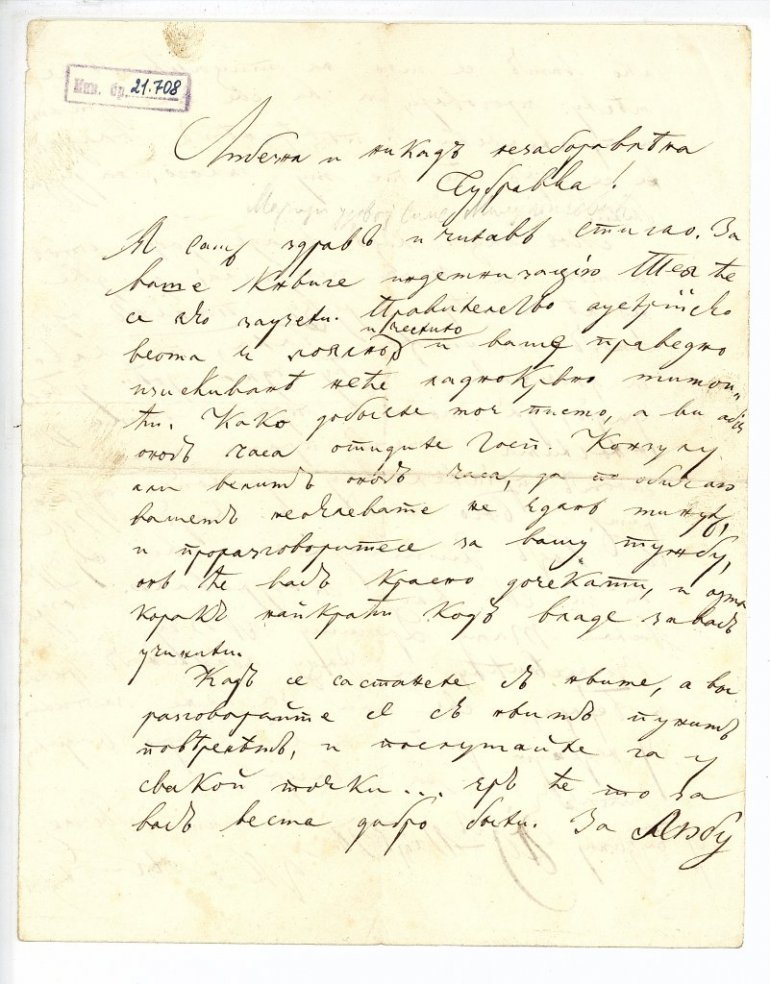 Инв. бр. 21.708
Любезна и никадъ незаборавлѣна
Дубравка!
Я самъ здравъ и читавъ стигао. За
ваше книге индемнизацiю ће
се яко заузети. Правителство аустрiйско
веома и лоялно и честито и ваше праведно
изискиванѣ неће ладнокрвно мимои-
ћи. Како добыете тој писмо, а ви
оногъ часа отидите Госп. Конзулу
или велимъ оногъ часа, да по обичаю
вашемъ не не єданъ минутъ,
и проразговоритесе за вашу тужбу,
онъ ће васъ красно дочекати, и
коракъ найкраћи кодъ владе за васъ
учинити.
Кадъ се састанете съ нѣиме, а ви
разговорайте се съ нѣимъ пунимъ
повѣренѣмъ, и послушайте га у
свакой точки... єръ ће то за
васъ веома добро быти. За Любу